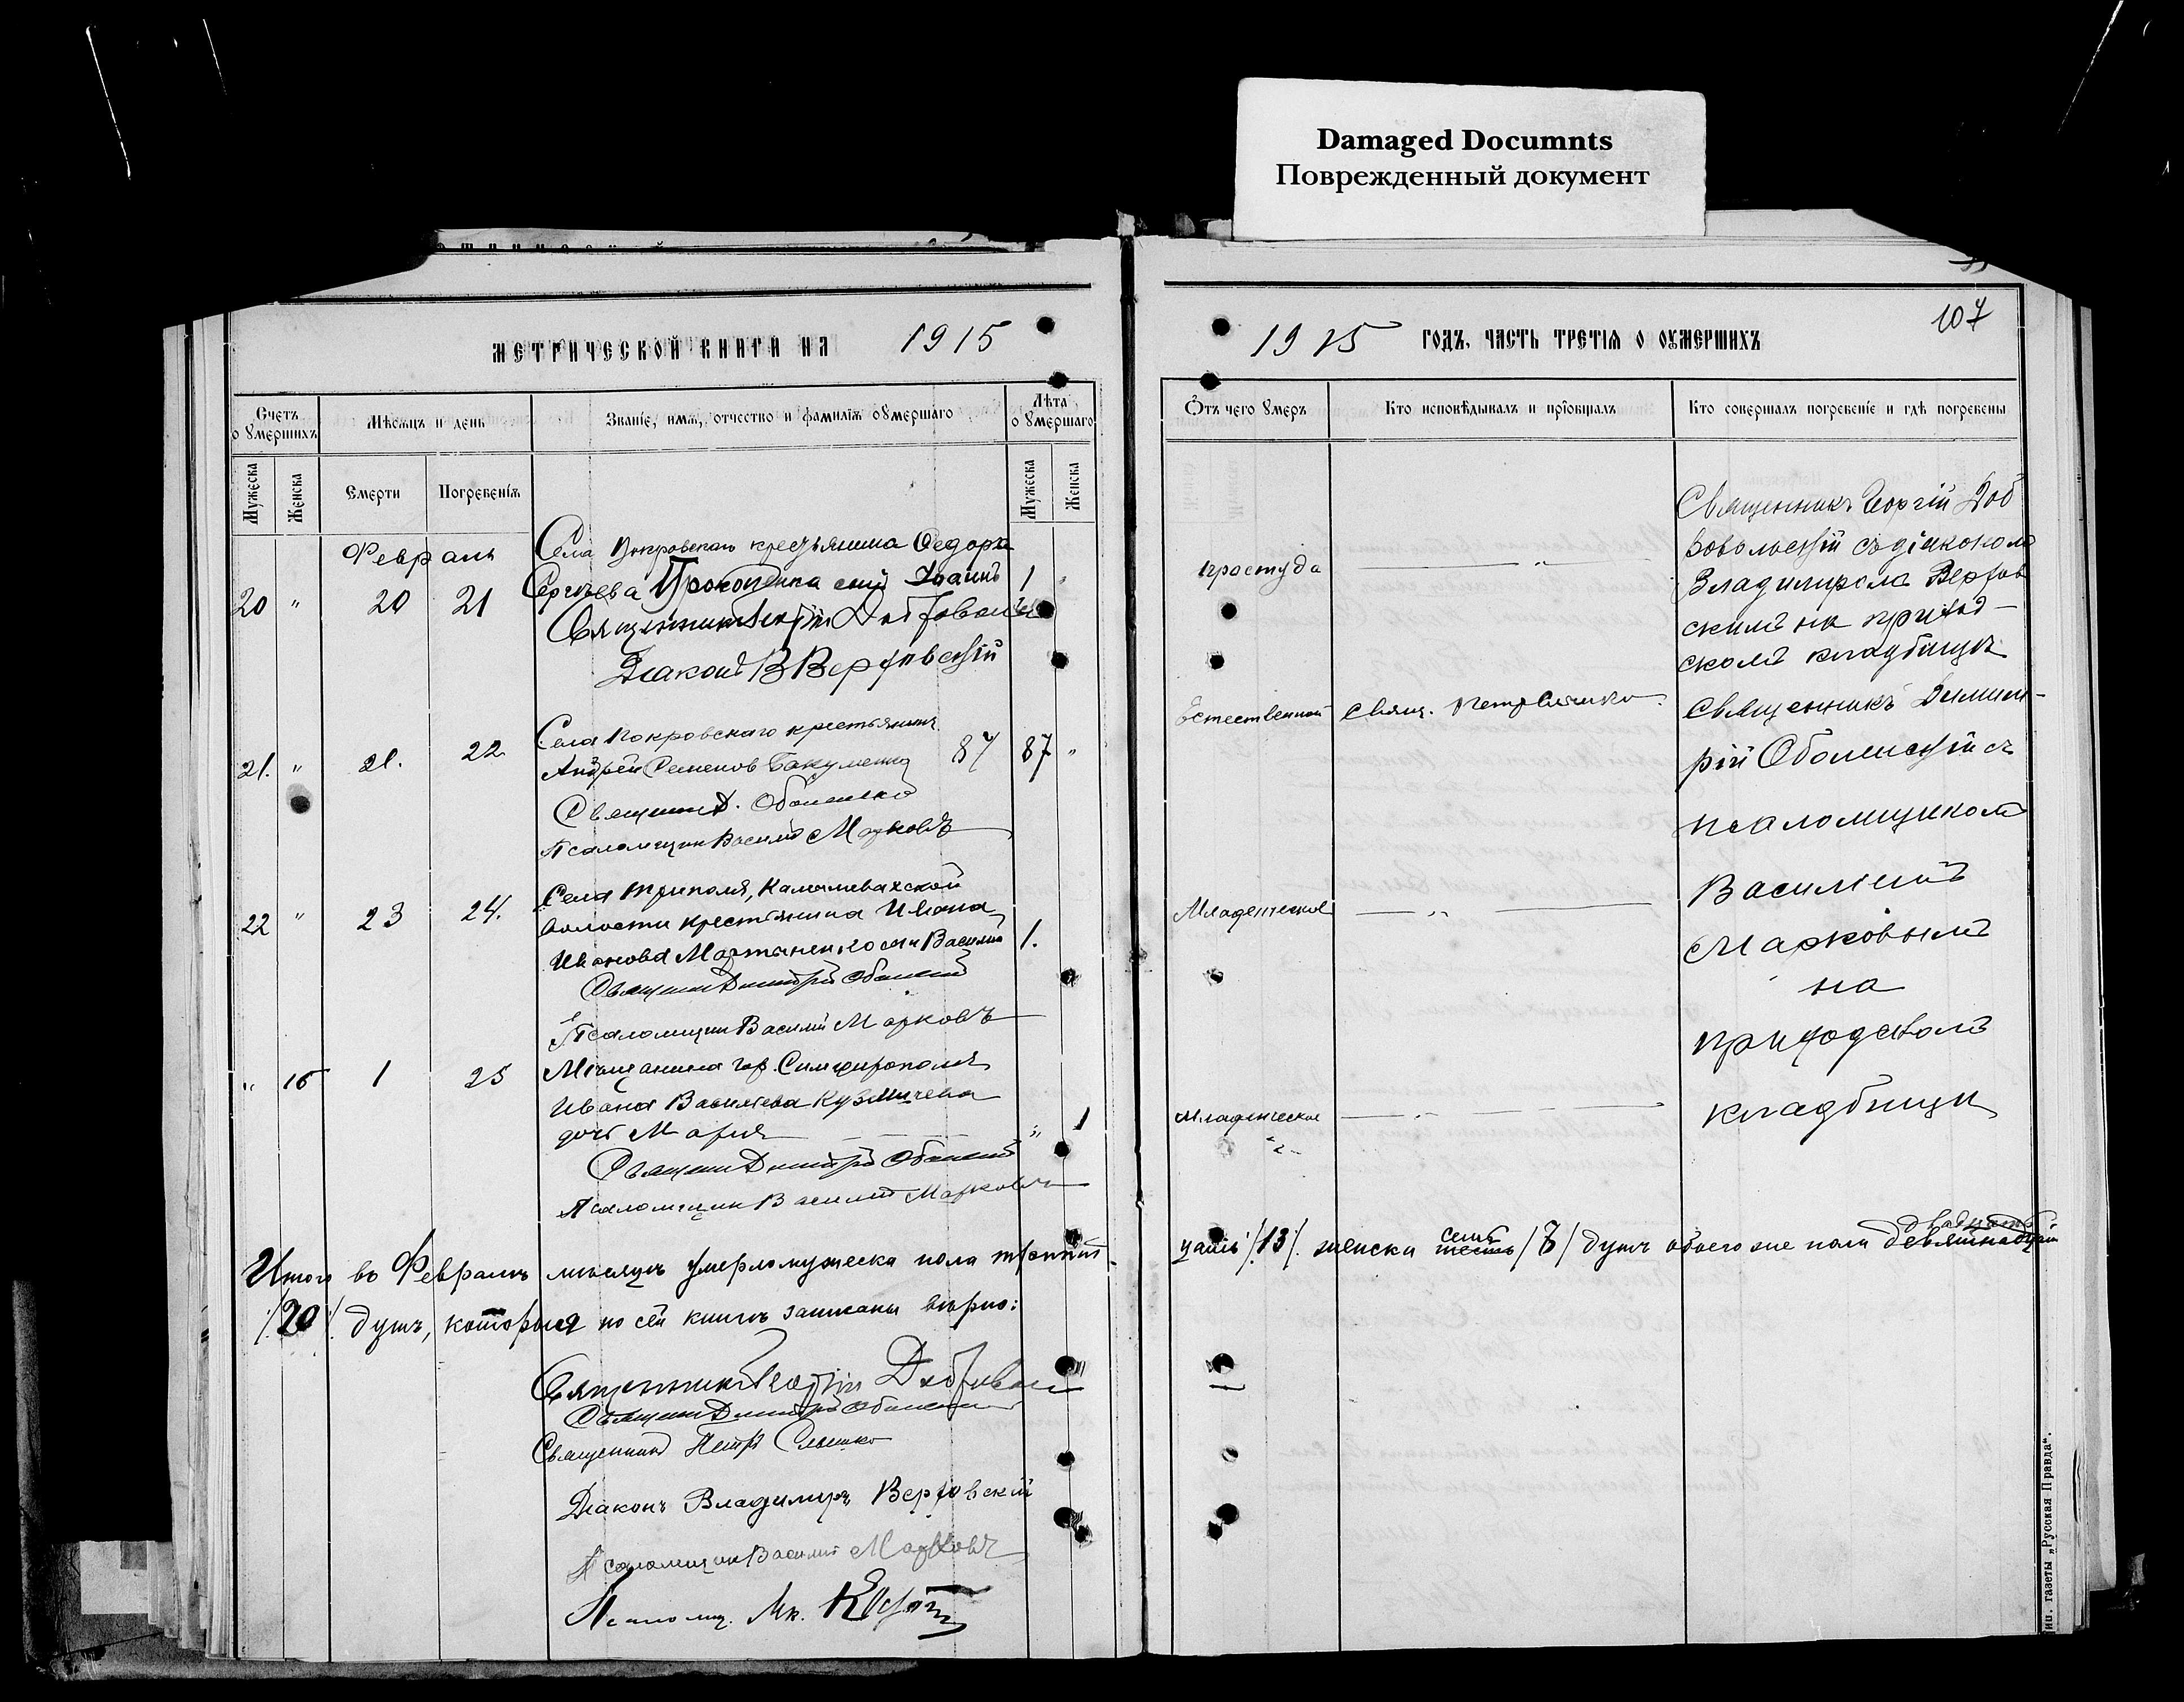 Damaged Documnts
Поврежденный документ
МЕТРИЧЕСКОЙ КНИГИ НА 1915
1915 ГОДЪ, ЧАСТЬ ТРЕТІЯ О ОУМЕРШИХЪ
107
Счетъ о умершихъ
Мѣсяцъ и день
Званіе, имя, отчество и фамилія оумершаго
Лѣта оумершаго
Отъ чего умеръ
Кто исповѣдывалъ и пріобщалъ
Кто совершалъ погребеніе и гдѣ погребены
Мужеска
Женска
Смерти
Погребенія
Мужеска
Женска
Февраль
Села Покровскаго крестьянина Ѳедора
20 " 20 21 Сергѣева Прокопенка сынъ Іоаннъ 1 "
Священникъ Георгій
Діаконъ В Верховскій
простуда — " —
Священникъ Георгій Доб
ровольскій съ діакономъ
Владиміромъ Верхов
скимъ на приход-
скомъ кладбищѣ
Села Покровскаго крестьянинъ
21. " 21. 22 Андрей Семенов Бакуменко 87 87 "
Священник Д. Оболенскій
Псаломщик Василій Марковъ
Естественной Свящ. Петр Слѣшко
Священникъ Димит-
рій Оболенскій съ
псаломщикомъ
Василіемъ
Марковымъ
на
приходскомъ
кладбищѣ
Села Триполя,
22 " 23 24. волости крестьянина Ивана
Иванова Мартыненко сын Василій 1.
Священник Димитрій Оболенскій
Псаломщик Василій Марковъ
Младенческое — " —
" 15 1 25 Мѣщанина гор. Симферополя
Ивана Васильева Кузмичева
дочь Марія " 1
Священник Димитрій Оболенскій
Псаломщик Василій Марковъ
Младенческое — " —
Итого въ Февралѣ мѣсяцѣ умерло мужеска пола тринад-
цать /13/. женска шесть семь /7/ душъ обоего же пола девятнадцать двадцать
/20/ душъ, которыя по сей книгѣ записаны вѣрно:
Священникъ Георгій
Священник Димитрій Оболенскій
Священникъ Петръ Слѣшко
Діаконъ Владимиръ Верховскій
Псаломщик Василій Марковъ
Псаломщ. Ик.
газеты „Русская Правда“.